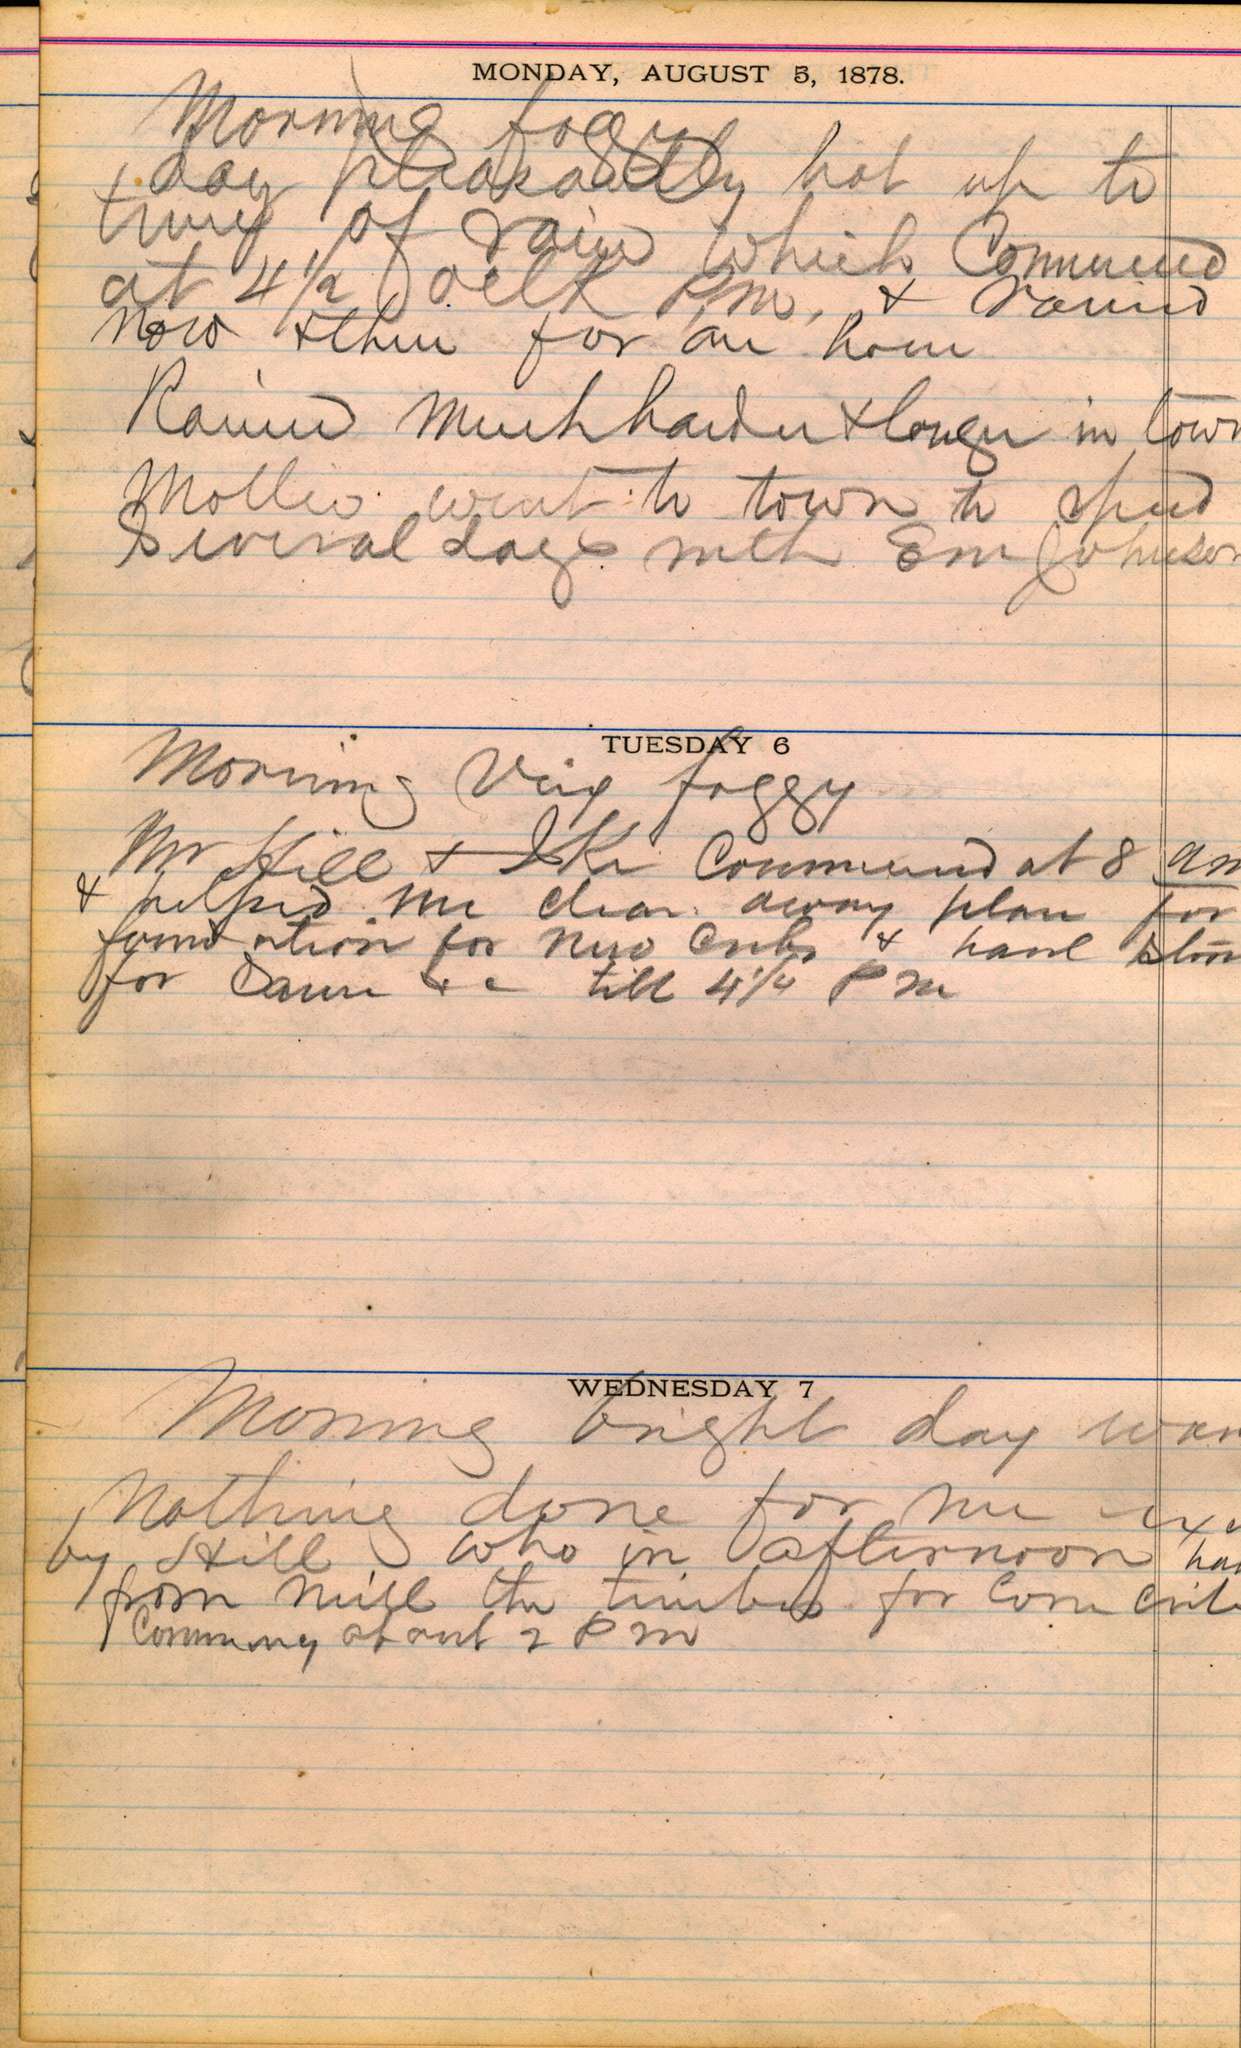 MONDAY, AUGUST 5, 1878.
Morning foggy
day pleasantly hot up to
time of rain which Commenced
at 4 1/2 oclk P.M. & rained
now & then for an hour
Rained Much harder & longer in town
Mollie went to town to spend
Several days with Em Johnson
TUESDAY 6
Morning Very foggy
Mr Hill & Ike Commenced at 8 am
& helped me clear away place for
foundation for new Cribs & haul
for Same &c till 4 1/4 P M
WEDNESDAY 7
Morning bright day
Nothing done for me
by Hill who in afternoon
from Mill the timbers for Corn
about 2 P M